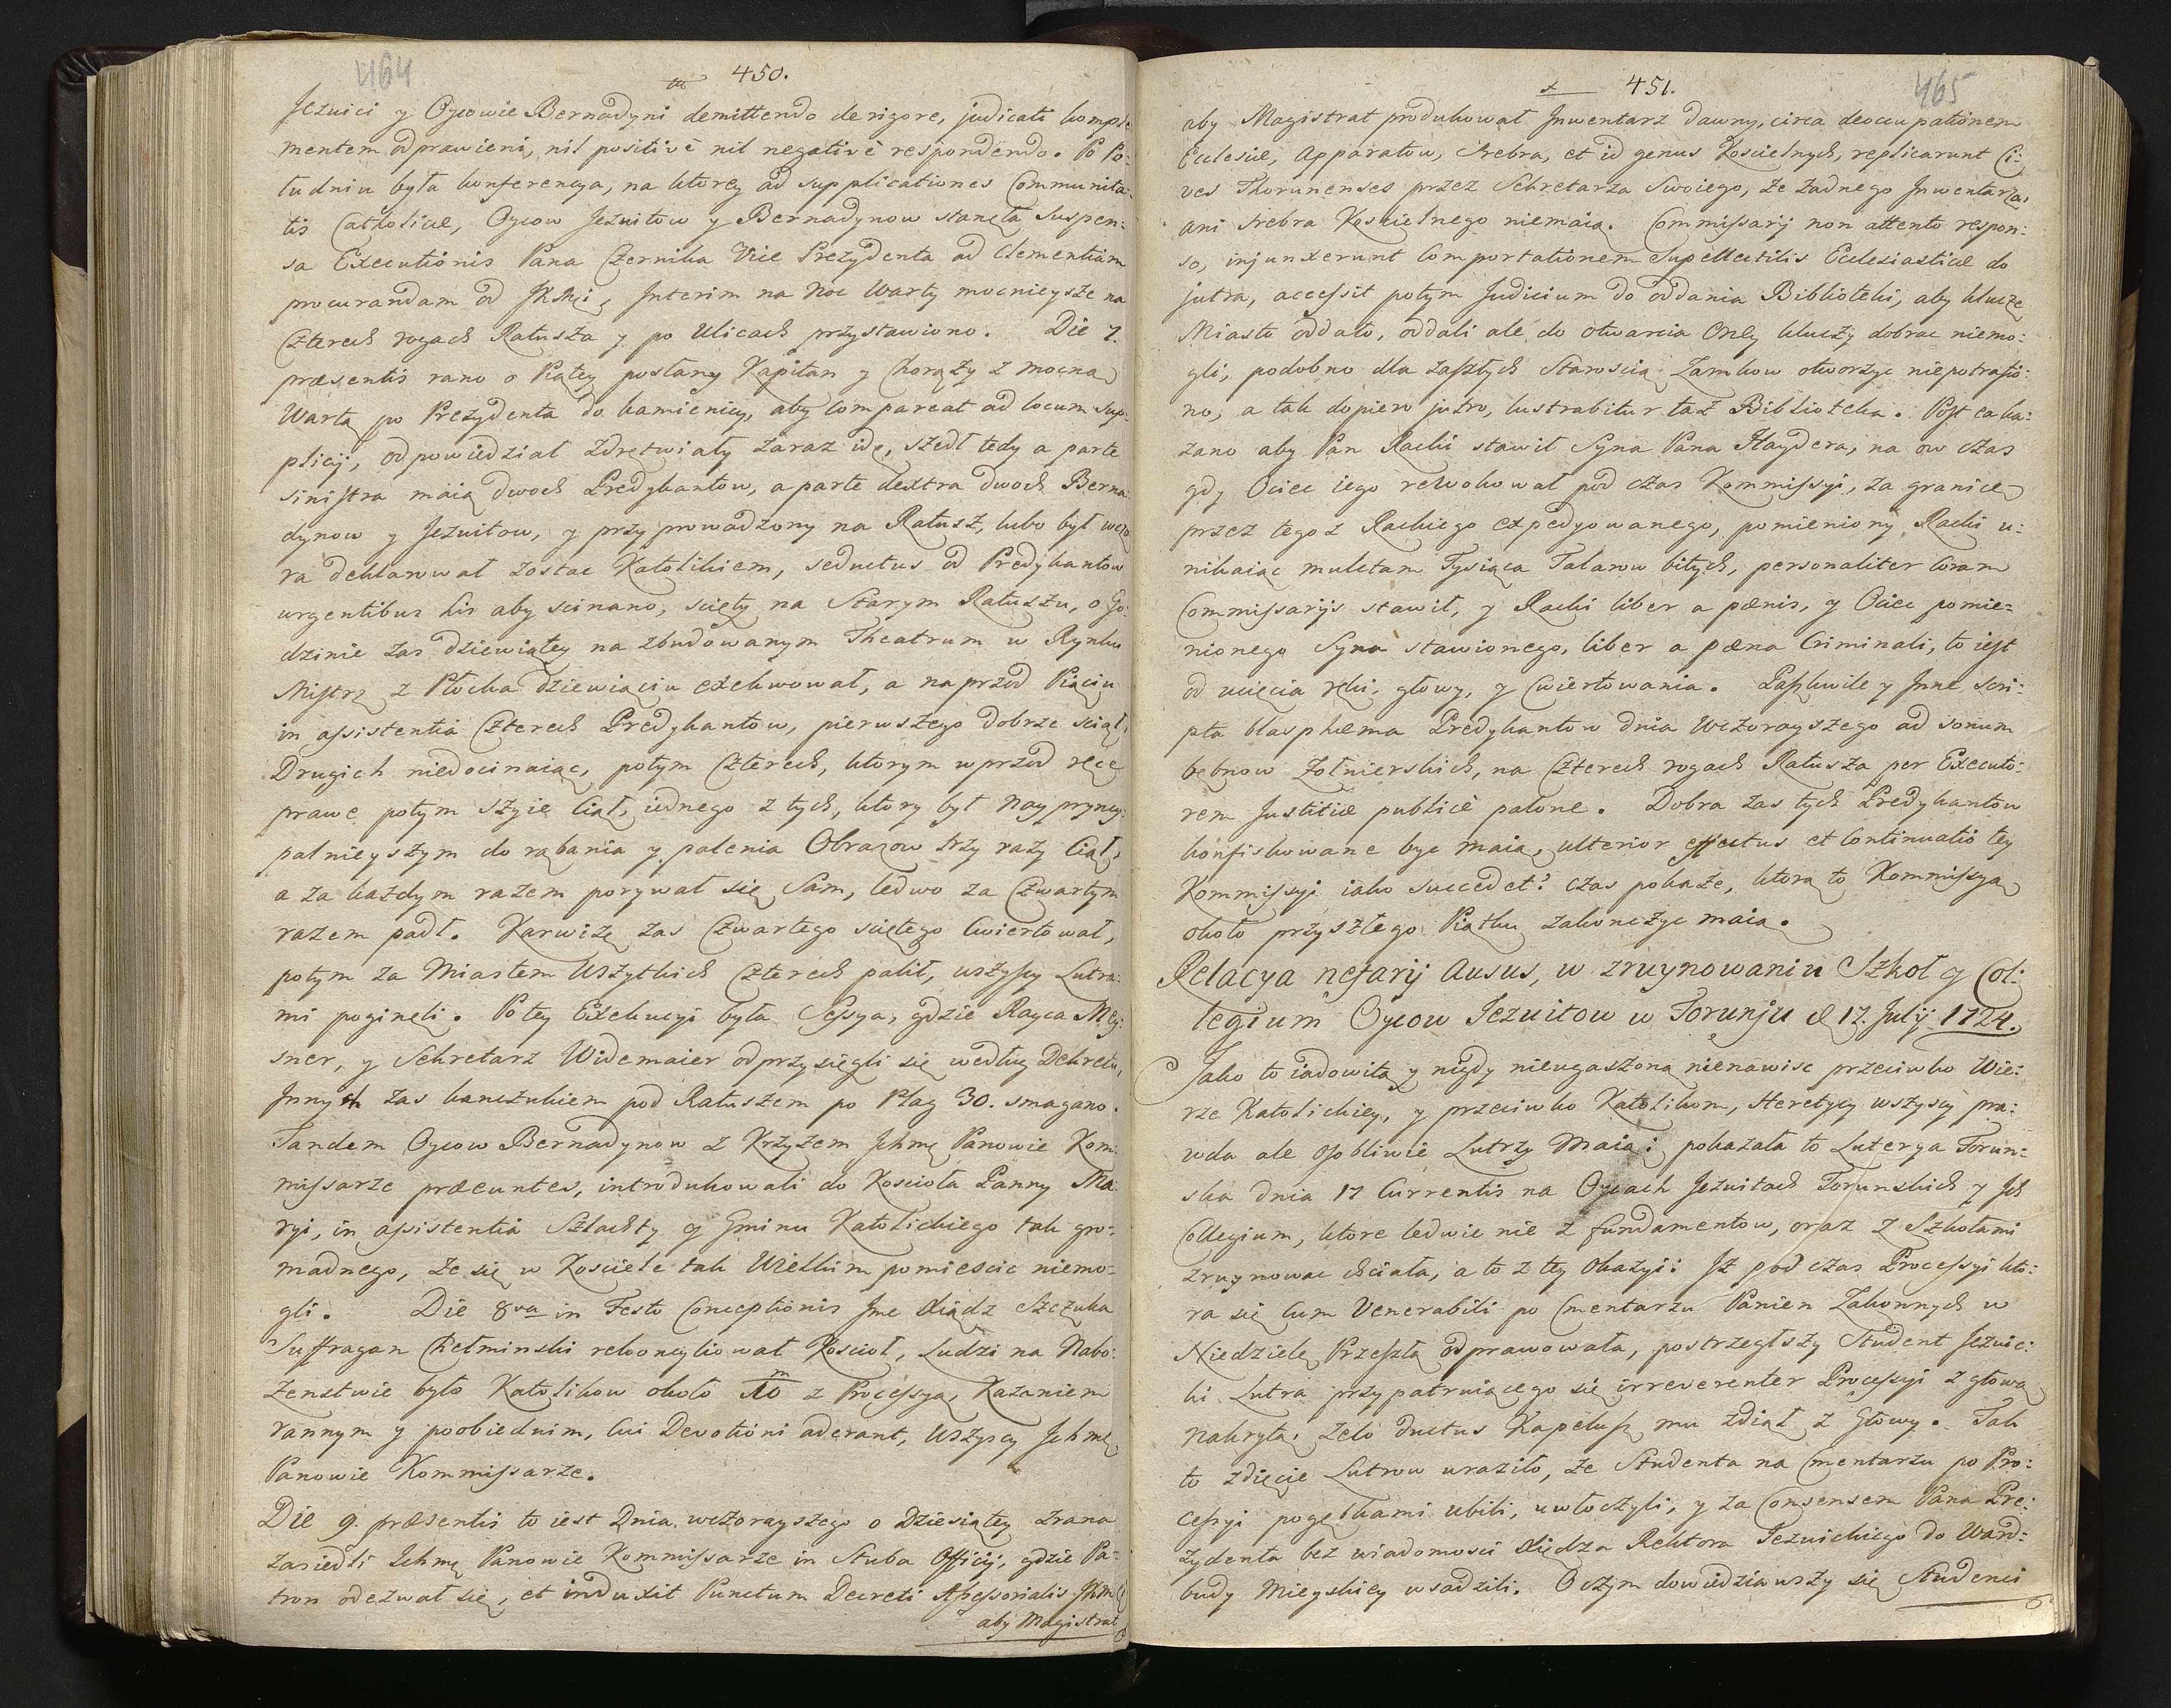 464
450.
Jezuici y Oycowie Bernadyni demittendo de rigore, judicati
mentem odprawieni, nil positivè nil negativè respondendo. Po Po-
łudniu była konferencya, na ktorey ad supplicationes Communita-
tis Catholicæ, Oycow Jezuitow y Bernadynow stanęła Suspen-
sa Executionis Pana Czernika Vice Prezydenta ad Clementiam
procurandam od JKMci, Interim na Noc Warty mocnieysze na
Czterech rogach Ratusza y po Ulicach przystawiono. Die 7.
præsentis rano o Piątey posłany Kapitan y Chorąży z mocną
Wartą po Prezydenta do kamienicy, aby compareat ad locum sup-
plicij, odpowiedział zdrętwiały zaraz idę, szedł tedy a parte
sinistra maią dwoch Predykantow, a parte dextra dwoch Berna-
dynow y Jezuitow, y przyprowadzony na Ratusz, lubo był wczo
ra deklarował zostac Katolikiem, seductus od Predykantow
urgentibus his aby scinano, scięty na Starym Ratuszu, o Go-
dzinie zas dziewiątey na zbudowanym Theatrum w Rynku
Mistrz z Płocka dziewiąciu exekwował, a naprzod Piąciu
in assistentia Czterech Predykantow, pierwszego dobrze sciął,
Drugich niedocinaiąc, potym Czterech, ktorym wprzod ręce
prawe potym szyie Ciął, iednego z tych, ktory był Naypryncy-
palnieyszym do rąbania y palenia Obrazow trzy razy Ciął,
a za każdym razem porywał się Sam, ledwo za Czwartym
razem padł. Karwizę zas Czwartego sciętego Cwiertował,
potym za Miastem Wszytkich Czterech palił, wszyscy Lutra-
mi poginęli. Po tey Exekucyi była Sessya, gdzie Rayca Mey-
sner, y Sekretarz Widemaier odprzysięgli się według Dekretu,
Innych zas kanczukiem pod Ratuszem po Plag 30. smagano.
Tandem Oycow Bernadynow z Krzyżem Ichmę Panowie Kom-
missarze præeuntes, introdukowali do Kościoła Panny Ma-
ryi, in assistentia Szlachty y Gminu Katolickiego tak gro-
madnego, że się w Kościele tak Wielkim pomieścic niemo-
gli. Die 8va in Festo Conceptionis Jmc Xiądz Szczuka
Suffragan Chełminski rekoncyliował Kościoł, Ludzi na Nabo-
żenstwie było Katolikow około Xm z Processyą, Kazaniem
rannym y poobiednim, cui Devotioni aderant, Wszyscy Ichmę,
Panowie Kommissarze.
Die 9. præsentis to iest Dnia wczorayszego o Dziesiątey zrana
zasiedli Ichmę Panowie Kommissarze in Stuba Officij, gdzie Pa-
tron odezwał się, et induxit Punctum Decreti Assessorialis
aby Magistrat
465
451.
aby Magistrat produkował Inwentarz dawny, circa deoccupationem
Ecclesiæ, Apparatow, Srebra, et id genus Kościelnych, replicarunt Ci-
ves Thorunenses przez Sekretarza Swoiego, że żadnego Inwentarza,
ani Srebra Kościelnego niemaią. Commissarij non attento respon-
so, injunxerunt Comportationem Supellectilis Ecclesiasticæ do
jutra, accessit potym Judicium do oddania Biblioteki, aby klucze
Miasto oddało, oddali ale do otwarcia Oney kluczy dobrac niemo-
gli, podobno dla zaszłych Starością Zamkow otworzyc niepotrafio-
no, a tak dopiero jutro, lustrabitur taż Biblioteka. Post ea ka-
zano aby Pan Racki stawił Syna Pana Haydera, na ow czas
gdy Ociec iego rewokował pod czas Kommissyi, za granicę
przez tegoż Rackiego expedyowanego, pomieniony Racki u-
nikaiąc mulctam Tysiąca Talarow bitych, personaliter coram
Commissarijs stawił, y Racki liber a pænis, y Ociec pomie-
nionego Syna stawionego, liber a pæna Criminali, to iest
od ucięcia ręki, głowy, y Cwiertowania. Paszkwile y Inne scri-
pta blasphema Predykantow dnia Wczorayszego ad sonum
bębnow Żołnierskich, na Czterech rogach Ratusza per Executo-
rem Justitiæ publicè palone. Dobra zas tych Predykantow
konfiskowane byc maią, ulterior effectus et Continuatio tey
Kommissyi iako succedet? czas pokaże, ktorą to Kommissyą
około przyszłego Piątku zakonczyc maią.
Relacya nefarij Ausus, w zruynowaniu Szkoł y Col-
legium Oycow Jezuitow w Torunju d 17. Julij 1724.
Jako to iadowitą y nigdy nieugaszoną nienawisc przeciwko Wie-
rze Katolickiey, y przeciwko Katolikom, Heretycy wszyscy pra-
wda ale osobliwie Lutrzy Maią; pokazała to Luterya Torun-
ska dnia 17 Currentis na Oycach Jezuitach Torunskich y Ich
Collegium, ktore ledwie nie z fundamentow, oraz z Szkołami
zruynowac chciała, a to z tey okazyi: Iż pod czas Processyi kto-
ra się Cum Venerabili po Cmentarzu Panien Zakonnych w
Niedzielę Przeszłą odprawowała, postrzegłszy Student Jezuic-
ki Lutra przypatruiącego się irreverenter Processyi z głową
nakrytą, zelo ductus Kapelusz mu zdiął z Głowy. Tak
to zdięcie Lutrow uraziło, że Studenta na Cmentarzu po Pro-
cessyi pogębkami ubili, uwłoczyli, y za Consensem Pana Pre-
zydenta bez wiadomości Xiędza Rektora Jezuickiego do Ward-
budy Mieyskiey wsadzili. O czym dowiedziawszy się Studenci